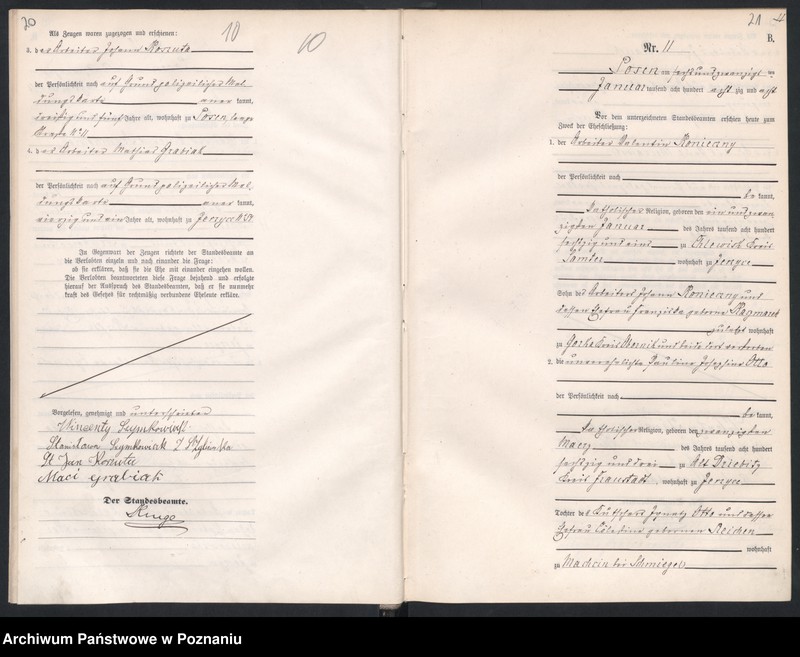 20
10
10
Als Zeugen waren zugezogen und erschienen:
3. des Arbeiter Johann
der Persönlichkeit nach auf Grund polizeilicher Mel-
dungskarte anerkannt,
dreißig und fünf Jahre alt, wohnhaft zu Posen,
4. der Arbeiter Mathias Grabiak
der Persönlichkeit nach auf Grund polizeilicher Mel-
dungskarte anerkannt,
vierzig und ein Jahre alt, wohnhaft zu Jerzyce
In Gegenwart der Zeugen richtete der Standesbeamte an
die Verlobten einzeln und nach einander die Frage:
ob sie erklären, daß sie die Ehe mit einander eingehen wollen.
Die Verlobten beantworteten diese Frage bejahend und erfolgte
hierauf der Ausspruch des Standesbeamten, daß er sie nunmehr
kraft des Gesetzes für rechtmäßig verbundene Eheleute erkläre.
Vorgelesen, genehmigt und unterschrieben
Wincenty Szymkowiak
Stanisława Szymkowiak
Jan
Maci grabiak
Der Standesbeamte.
21
B.
Nr. 11
Posen am sechsundzwanzigsten
Januar tausend acht hundert achtzig und acht
Vor dem unterzeichneten Standesbeamten erschien heute zum
Zweck der Eheschließung:
1. der Arbeiter Valentin Konieczny
der Persönlichkeit nach
be kannt,
katholischer Religion, geboren den einundzwan-
zigsten Januar des Jahres tausend acht hundert
sechszig und eins zu Kreis
Samter wohnhaft zu Jerzyce
Sohn des Arbeiters Johann Konieczny und
dessen Ehefrau Franziska geborne
zuletzt wohnhaft
zu Kreis und beide dort verstorben
2. die unverehelichte Pauline Josephine Otto
der Persönlichkeit nach
be kannt,
katholischer Religion, geboren den zwanzigsten
Maerz des Jahres tausend acht hundert
sechszig und drei zu Alt Driebitz
Kreis Fraustadt, wohnhaft zu Jerzyce
Tochter des Kutschers Ignatz Otto und dessen
Ehefrau geborenen Reichen
wohnhaft
zu Machcin bei Schmiegel
Archiwum Państwowe w Poznaniu